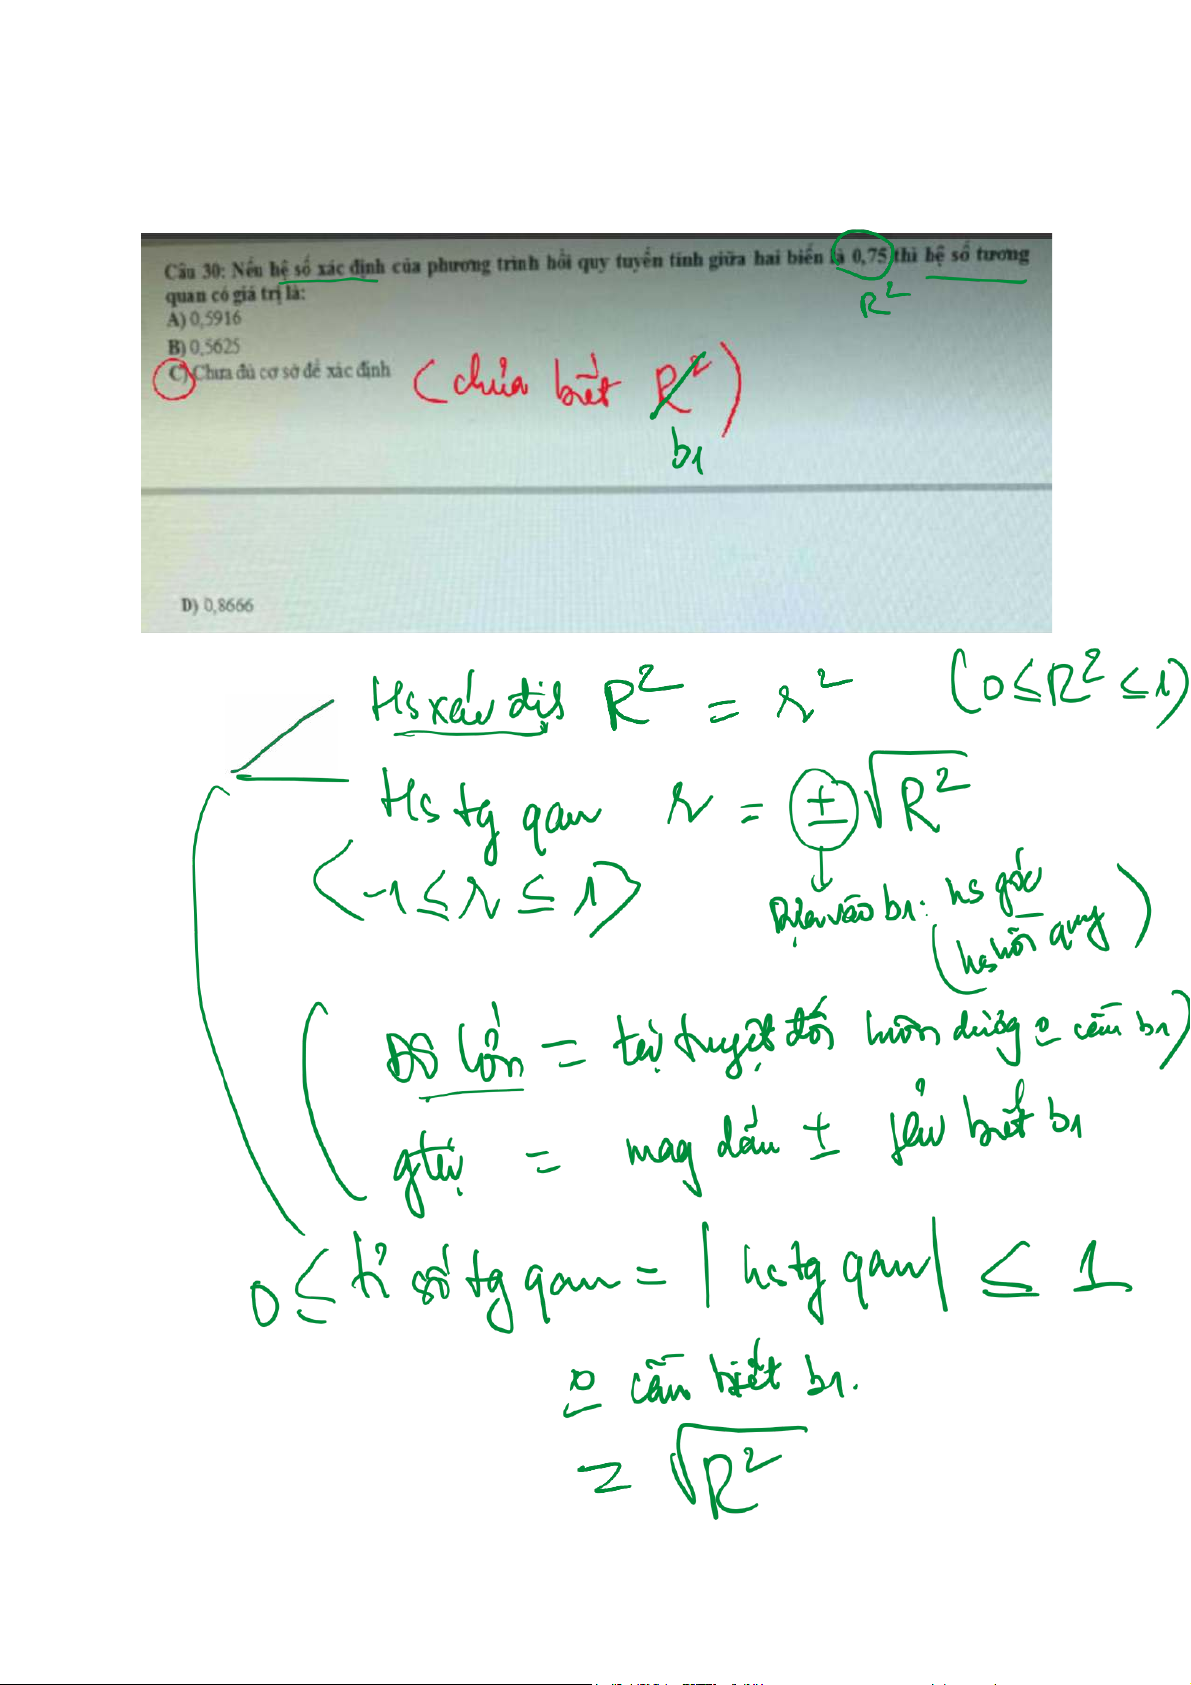 Câu 30: Nếu hệ số xác định của phương trình hồi quy tuyến tính giữa hai biến là 0,75 thì hệ số tương
quan có giá trị là:
R²
A) 0,5916
B) 0,5625
C) Chưa đủ cơ sở để xác định (chưa biết R²)
b1
D) 0,8666
Hs xác địh R² = r² (0 ≤ R² ≤ 1)
Hs tg qan r = ± √R²
(-1 ≤ r ≤ 1)
Dựa vào b1: hs góc
(hs hồi quy)
(Độ lớn = trị tuyệt đối luôn dương o cần b1)
gtrị = mag dấu ± fải biết b1
0 ≤ tỉ số tg qan = | hs tg qan | ≤ 1
o cần biết b1.
= √R²